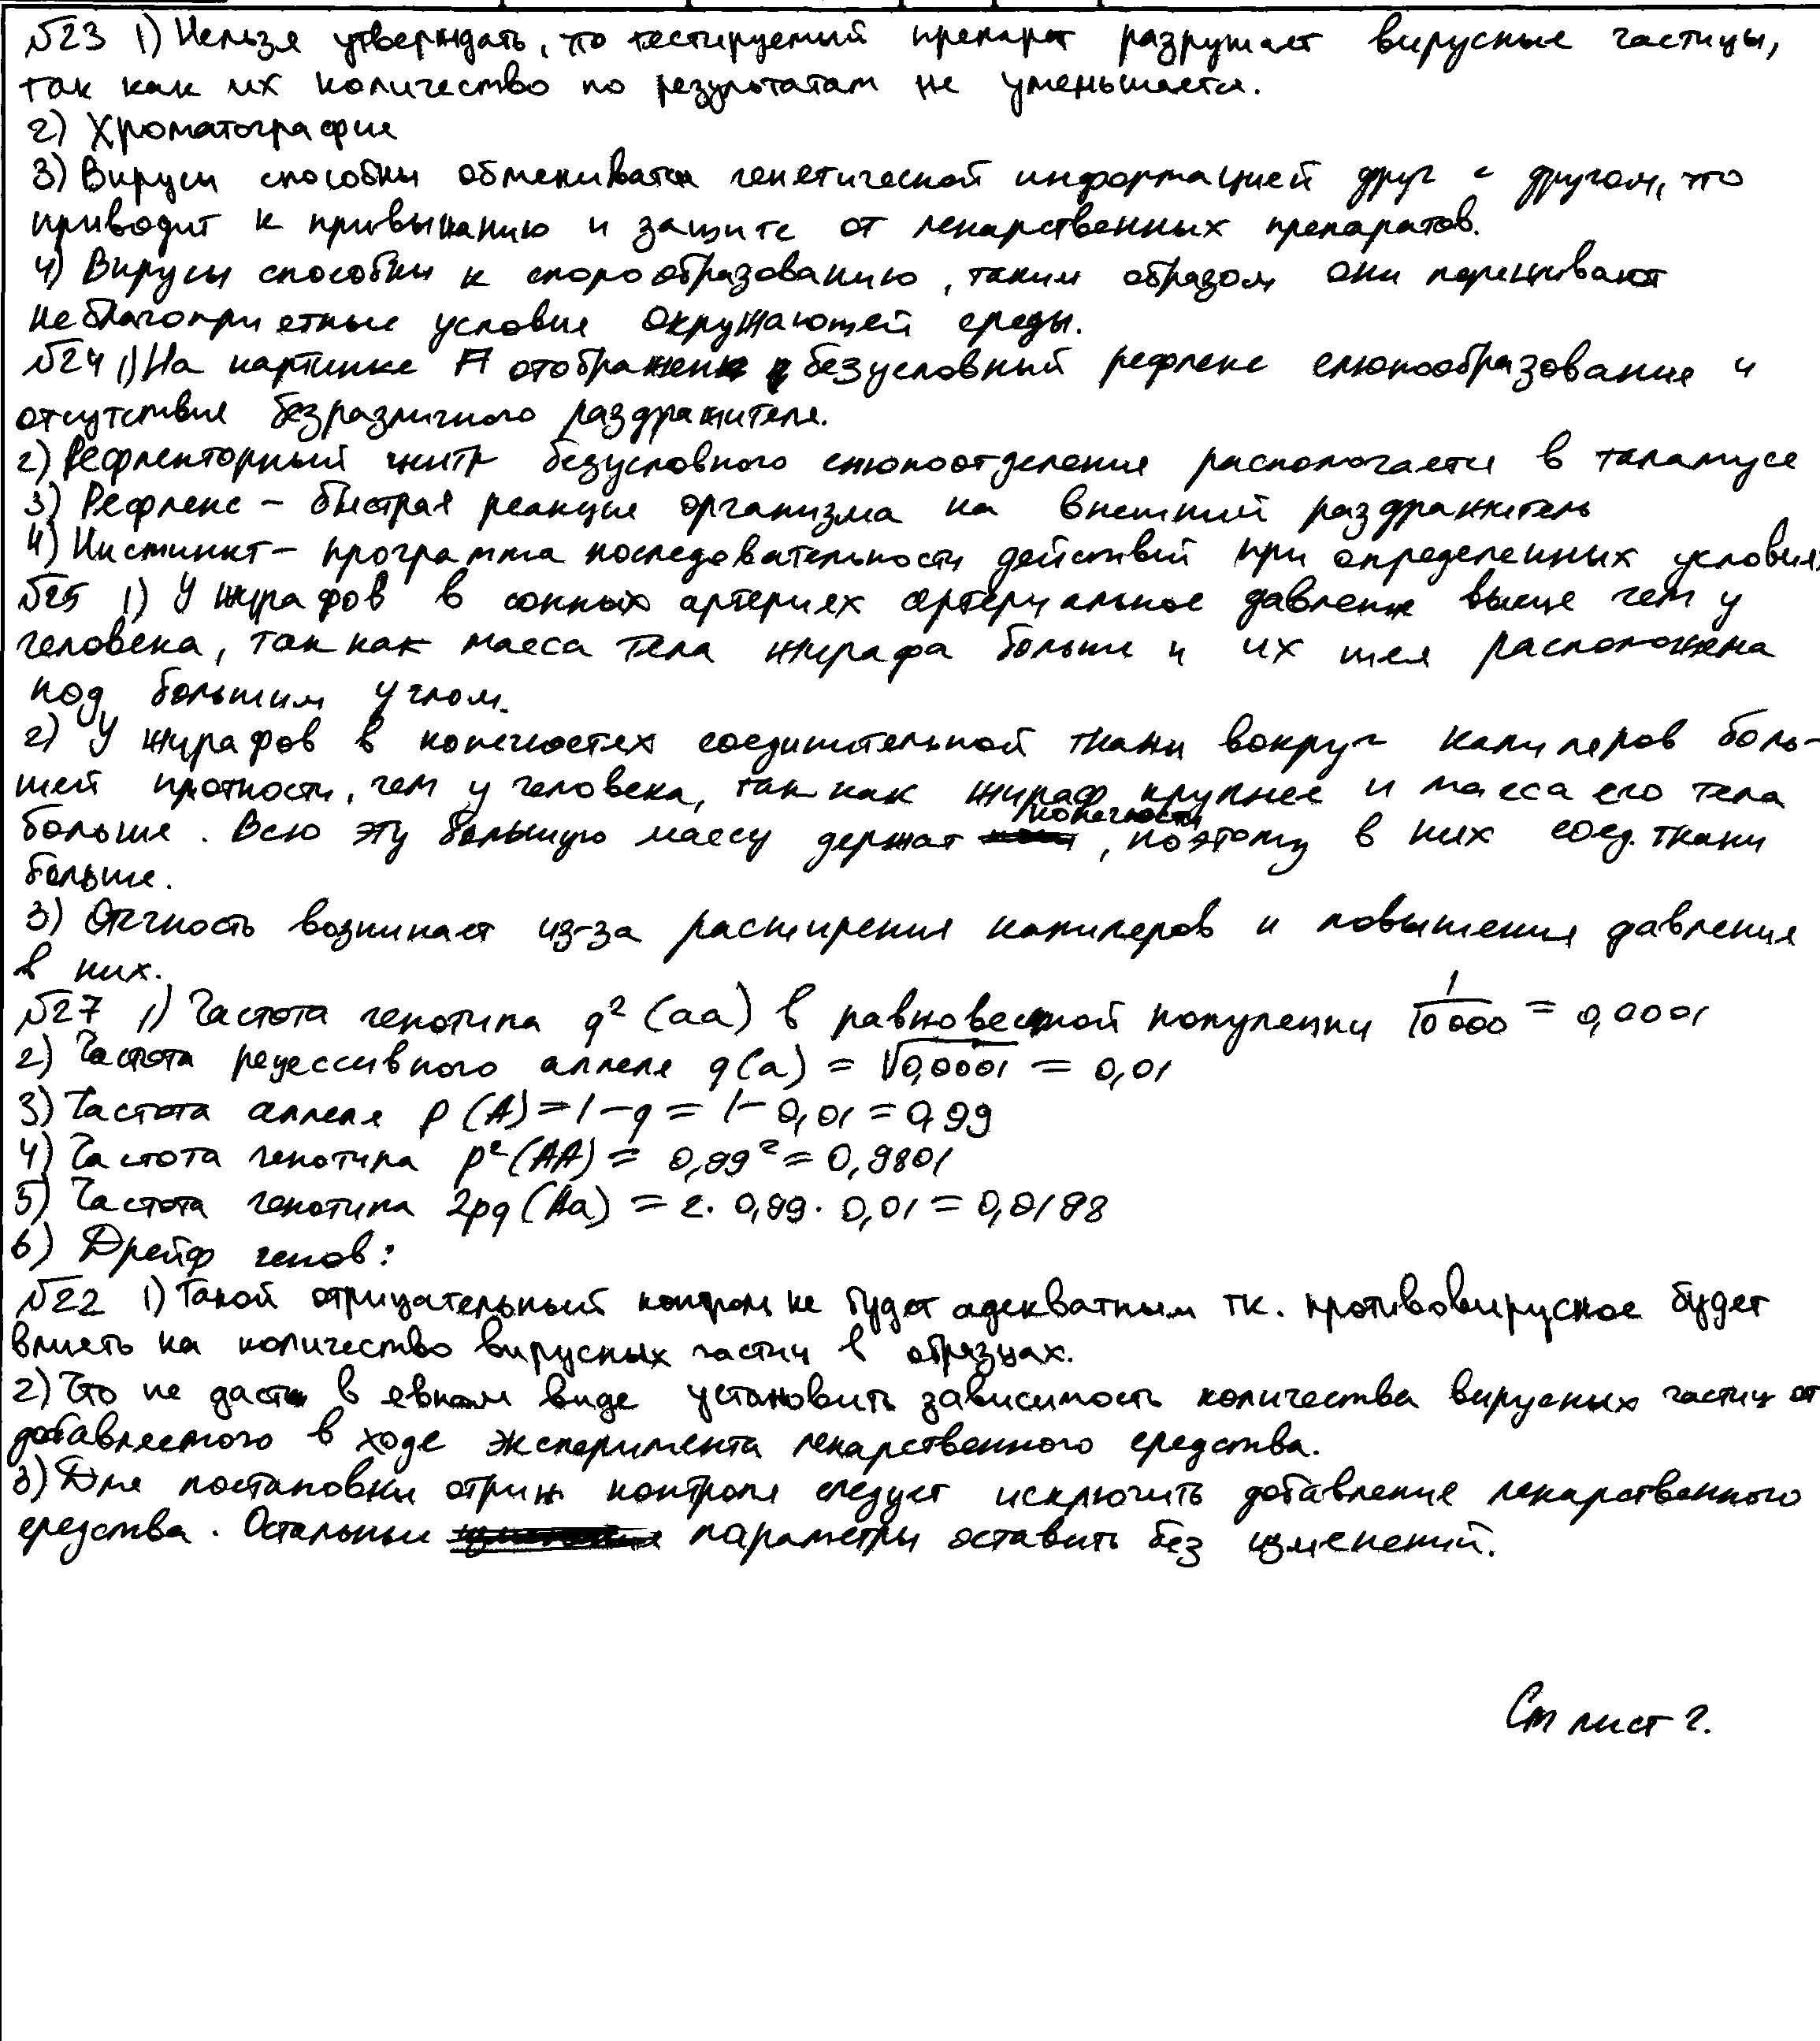 №23 1) Нельзя утверждать, что тестируемый препарат разрушает вирусные частицы,
так как их количество по результатам не уменьшается.
2) Хроматография
3) Вирусы способны обмениваться генетической информацией друг с другом, что
приводит к привыканию и защите от лекарственных препаратов.
4) Вирусы способны к спорообразованию, таким образом они переживают
неблагоприятные условия окружающей среды.
№24 1) На картинке А отображен безусловный рефлекс слюнообразования и
отсутствие безразличного раздражителя.
2) Рефлекторный центр безусловного слюноотделения располагается в таламусе
3) Рефлекс – быстрая реакция организма на внешний раздражитель
4) Инстинкт – программа последовательности действий при определенных условиях
№25 1) У жирафов в сонных артериях артериальное давление выше чем у
человека, так как масса тела жирафа больше и их шея расположена
под большим углом.
2) У жирафов в конечностях соединительной ткани вокруг капиляров боль-
шей плотности, чем у человека, так как жираф крупнее и масса его тела
больше. Всю эту большую массу держат конечности, поэтому в них соед. ткани
больше.
3) Отечность возникает из-за расширения капиляров и повышения давления
в них.
№27 1) Частота генотипа q² (aa) в равновесной популяции 1/10000 = 0,0001
2) Частота рецессивного аллеля q(a) = √0,0001 = 0,01
3) Частота аллеля p(A) = 1 – q = 1 – 0,01 = 0,99
4) Частота генотипа p²(AA) = 0,99² = 0,9801
5) Частота генотипа 2pq (Aa) = 2 · 0,99 · 0,01 = 0,0198
6) Дрейф генов:
№22 1) Такой отрицательный контроль не будет адекватным тк. противовирусное будет
влиять на количество вирусных частиц в образцах.
2) Что не даст в явном виде установить зависимость количества вирусных частиц от
добавляемого в ходе эксперимента лекарственного средства.
3) Для постановки отриц контроля следует исключить добавление лекарственного
средства. Остальные параметры оставить без изменений.
См лист 2.